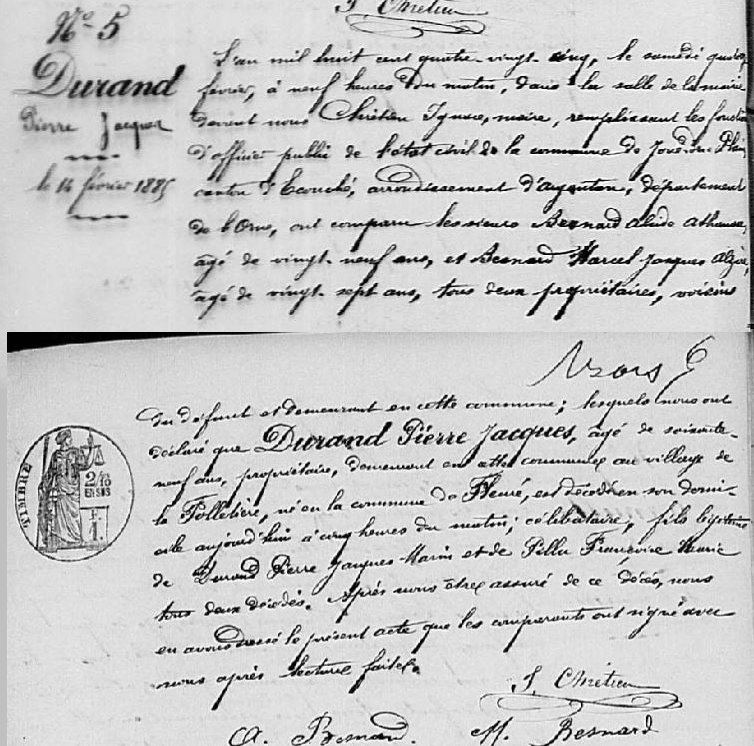 J Chrétien
N° 5
Durand
Pierre Jacques
le 14 février 1885
L'an mil huit cent quatre-vingt-cinq, le samedi quatorze
février, à neuf heures du matin, dans la salle de la mairie
devant nous Chrétien Ignace, maire, remplissant les fonctions
d'officier public de l'état civil de la commune de Joué-du-Plain
canton d'Ecouché, arrondissement d'Argentan, département
de l'Orne, ont comparu les sieurs Besnard Alcide Athanase,
âgé de vingt-neuf ans, et Besnard Marcel Jacques
âgé de vingt-sept ans, tous deux propriétaires, voisins
du défunt et demeurant en cette commune; lesquels nous ont
déclaré que Durand Pierre Jacques, âgé de soixante-
neuf ans, propriétaire, demeurant en cette commune au village de
la Folletière, né en la commune de Fleuré, est décédé en son domi-
cile aujourd'hui à cinq heures du matin; célibataire, fils légitime
de Durand Pierre Jacques Marin et de Fillu Françoise Marie
tous deux décédés. Après nous être assuré de ce décès, nous
en avons dressé le présent acte que les comparants ont signé avec
nous après lecture faite.
TIMBRE
2/10
EN SUS
1F
J Chrétien
A. Besnard. M. Besnard